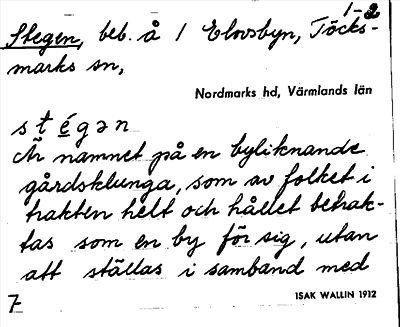 1-2
Stegen, beb. å / Elovsbyn, Töcks-
marks sn,
Nordmarks hd, Värmlands län
s t é g ə n
Är namnet på en byliknande
gårdsklunga, som av folket i
trakten helt och hållet betrak-
tas som en by för sig, utan
att ställas i samband med
7
ISAK WALLIN 1912